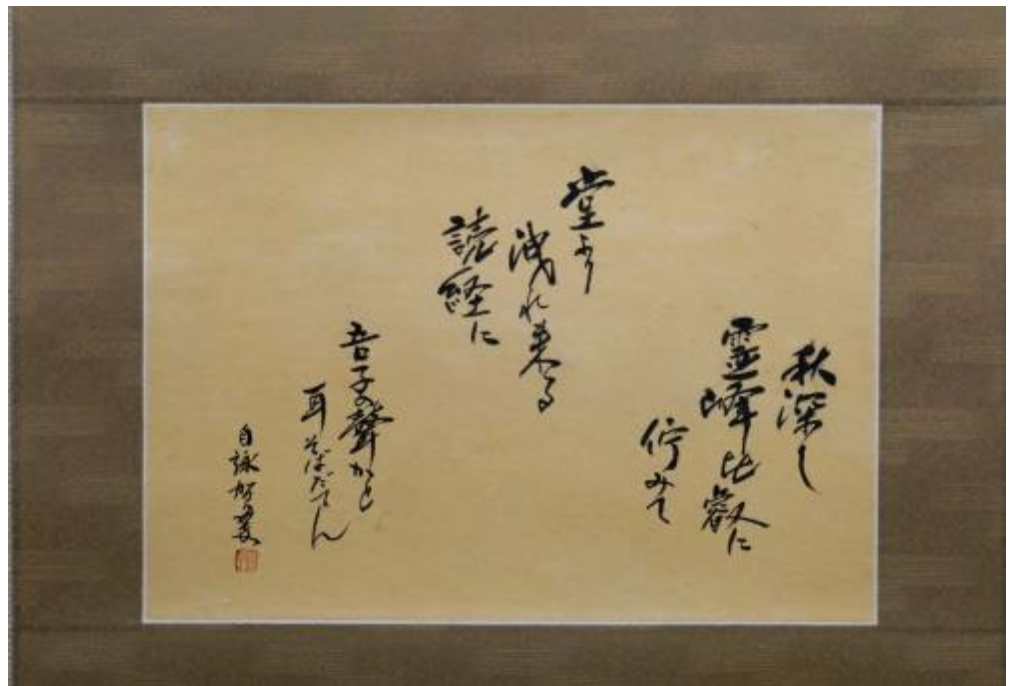 秋深し
霊峰比叡に
佇みて
堂より
洩れ来る
読経に
吾子の聲かと
耳そばだてん
自詠